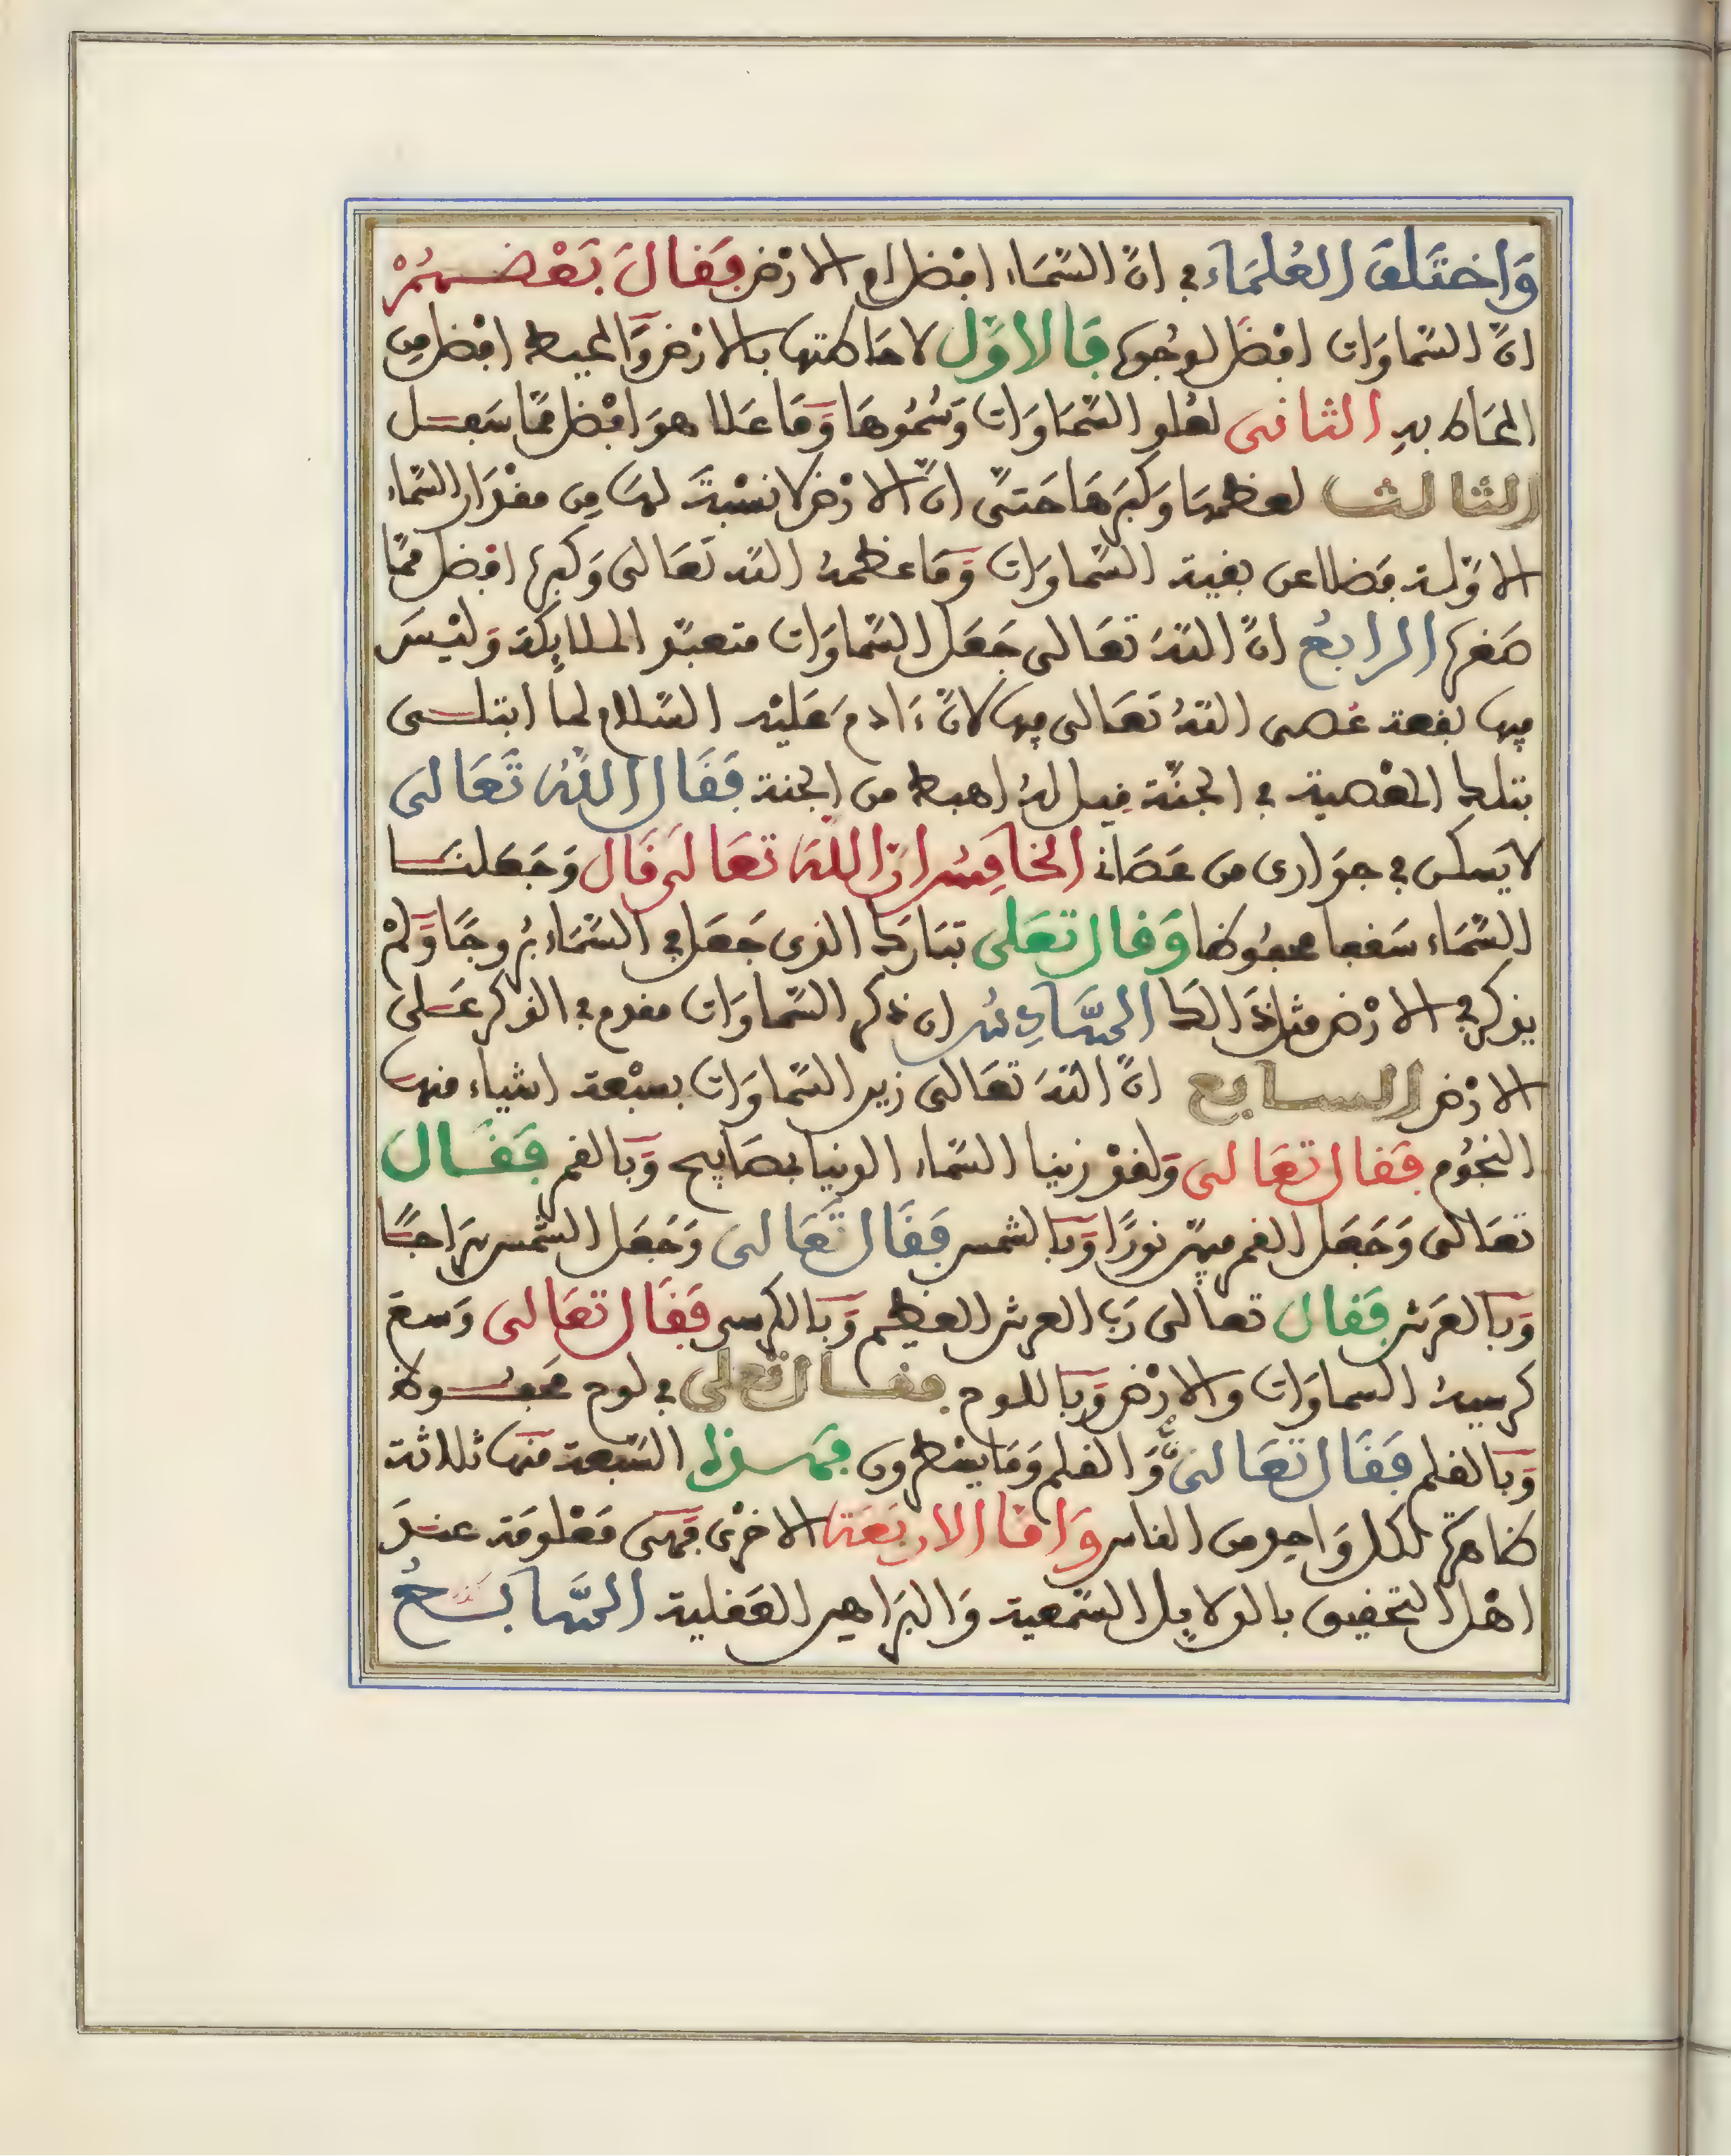 وَاختَلَفَ العُلمَاء في انَّ السَّمَاء افضل ام الارْض فَقَالَ بَعْضهُمْ
انَّ السَّماوَات افضَل لوجُوه فَالاوَّل لاحَاطتها بالارْض وَالمحيط افضل مِن
المحَاط به الثانى لعُلو السَّمَاوَات وَسُمُوهَا وَمَا عَلا هوَ افْضل ممَّا سَفل
الثالث لعظمهَا وَكبَرهَا حَتىَّ انَّ الارْض لا نسْبةَ لهَا مِن مقْدَار السَّماء
الاوَّلة فضَلا عن بقية السَّماوَات وَمَا عظمهُ الله تعَالى وَكبره افضل ممَّا
صَغره الرابعُ انَّ اللهَ تعَالى جَعَل السَّماوَات متعبَّد الملايكة وَليْسَ
فيها بقعة عُصى اللهُ تعَالى فيها لانَّ ءَادم عَليْه السَّلام لما ابتلى
بتلك المعْصية في الجنَّة قِيل لهُ اهبط من الجنة فَقَال اللهُ تَعَالى
لا يَسكن في جوَارى من عَصَانى الخامِسُ انَّ اللهَ تعَالى قَال وَجَعَلنَا
السَّمَاء سَقفا محفُوظا وَقال تعَلى تبَارَك الذى جَعَل في السَّمَاء بُروجًا وَلمْ
يذكر في الارْض مثل ذَالك السَّادِسُ ان ذكر السَّماوَات مقدم في الذكر عَلى
الارْض السابع انَّ اللهَ تعَالى زين السَّماوَات بسبْعة اشياء منها
النجُوم فَقال تعَالى وَلقدْ زينا السَّماء الدنيا بمصَابيح وَبالقمر فَقَال
تعَالى وَجَعَل القمر فيهنّ نورًا وَبالشمس فَقَال تَعَالى وَجَعَل الشَّمس سرَاجًا
وَبالعَرش فَقال تعالى رَب العرش العظيم وَبالكرسى فَقَال تعَالى وَسعَ
كرسيهُ السماوَات والارْض وَباللوح فقال تعلى في لوح محفوظ
وَبالقلم فَقَال تعَالى نَّ وَالقلم وَمَا يسْطرون فهَذه السَّبعة منهَا ثلاثة
ظاهرَة لكل وَاحد من الناس وَامَّا الاربَعَة الاخرْى فهىَ مَعْلومَة عندَ
اهْل التحقيق بالدلايِل السَّمعية وَالبرَاهين العَقلية السَّابعُ